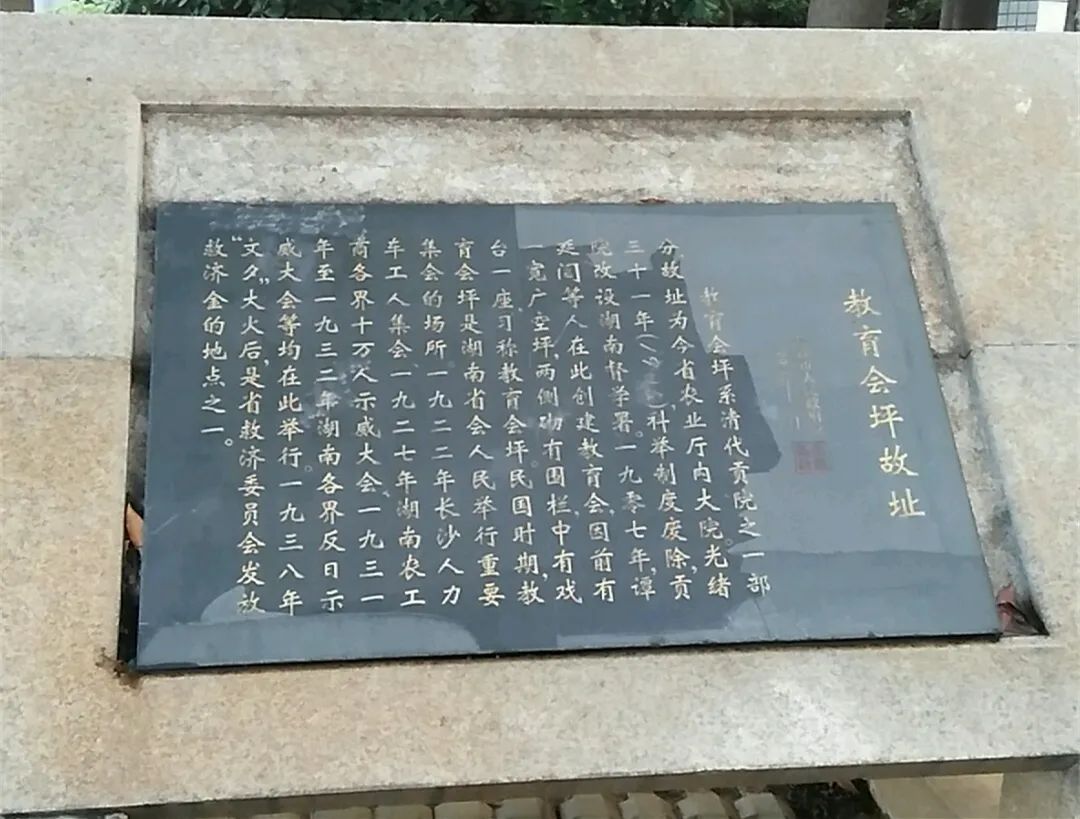 教育会坪故址
教育会坪系清代贡院之一部
分故址为今省农业厅内大院。光绪
三十一年(一九 科举制度废除,贡
院改设湖南督学署。一九零七年,谭
延闿等人在此创建教育会,因前有
一宽广空坪,两侧砌有围栏中有戏
台一座,习称教育会坪民国时期,教
育会坪是湖南省会人民举行重要
集会的场所。一九二二年长沙人力
车工人集会、一九二七年湖南农工
商各界十万人示威大会、一九三一
年至一九三二年湖南各界反日示
威大会等均在此举行。一九三八年
“文夕”大火后,是省救济委员会发放
救济金的地点之一。